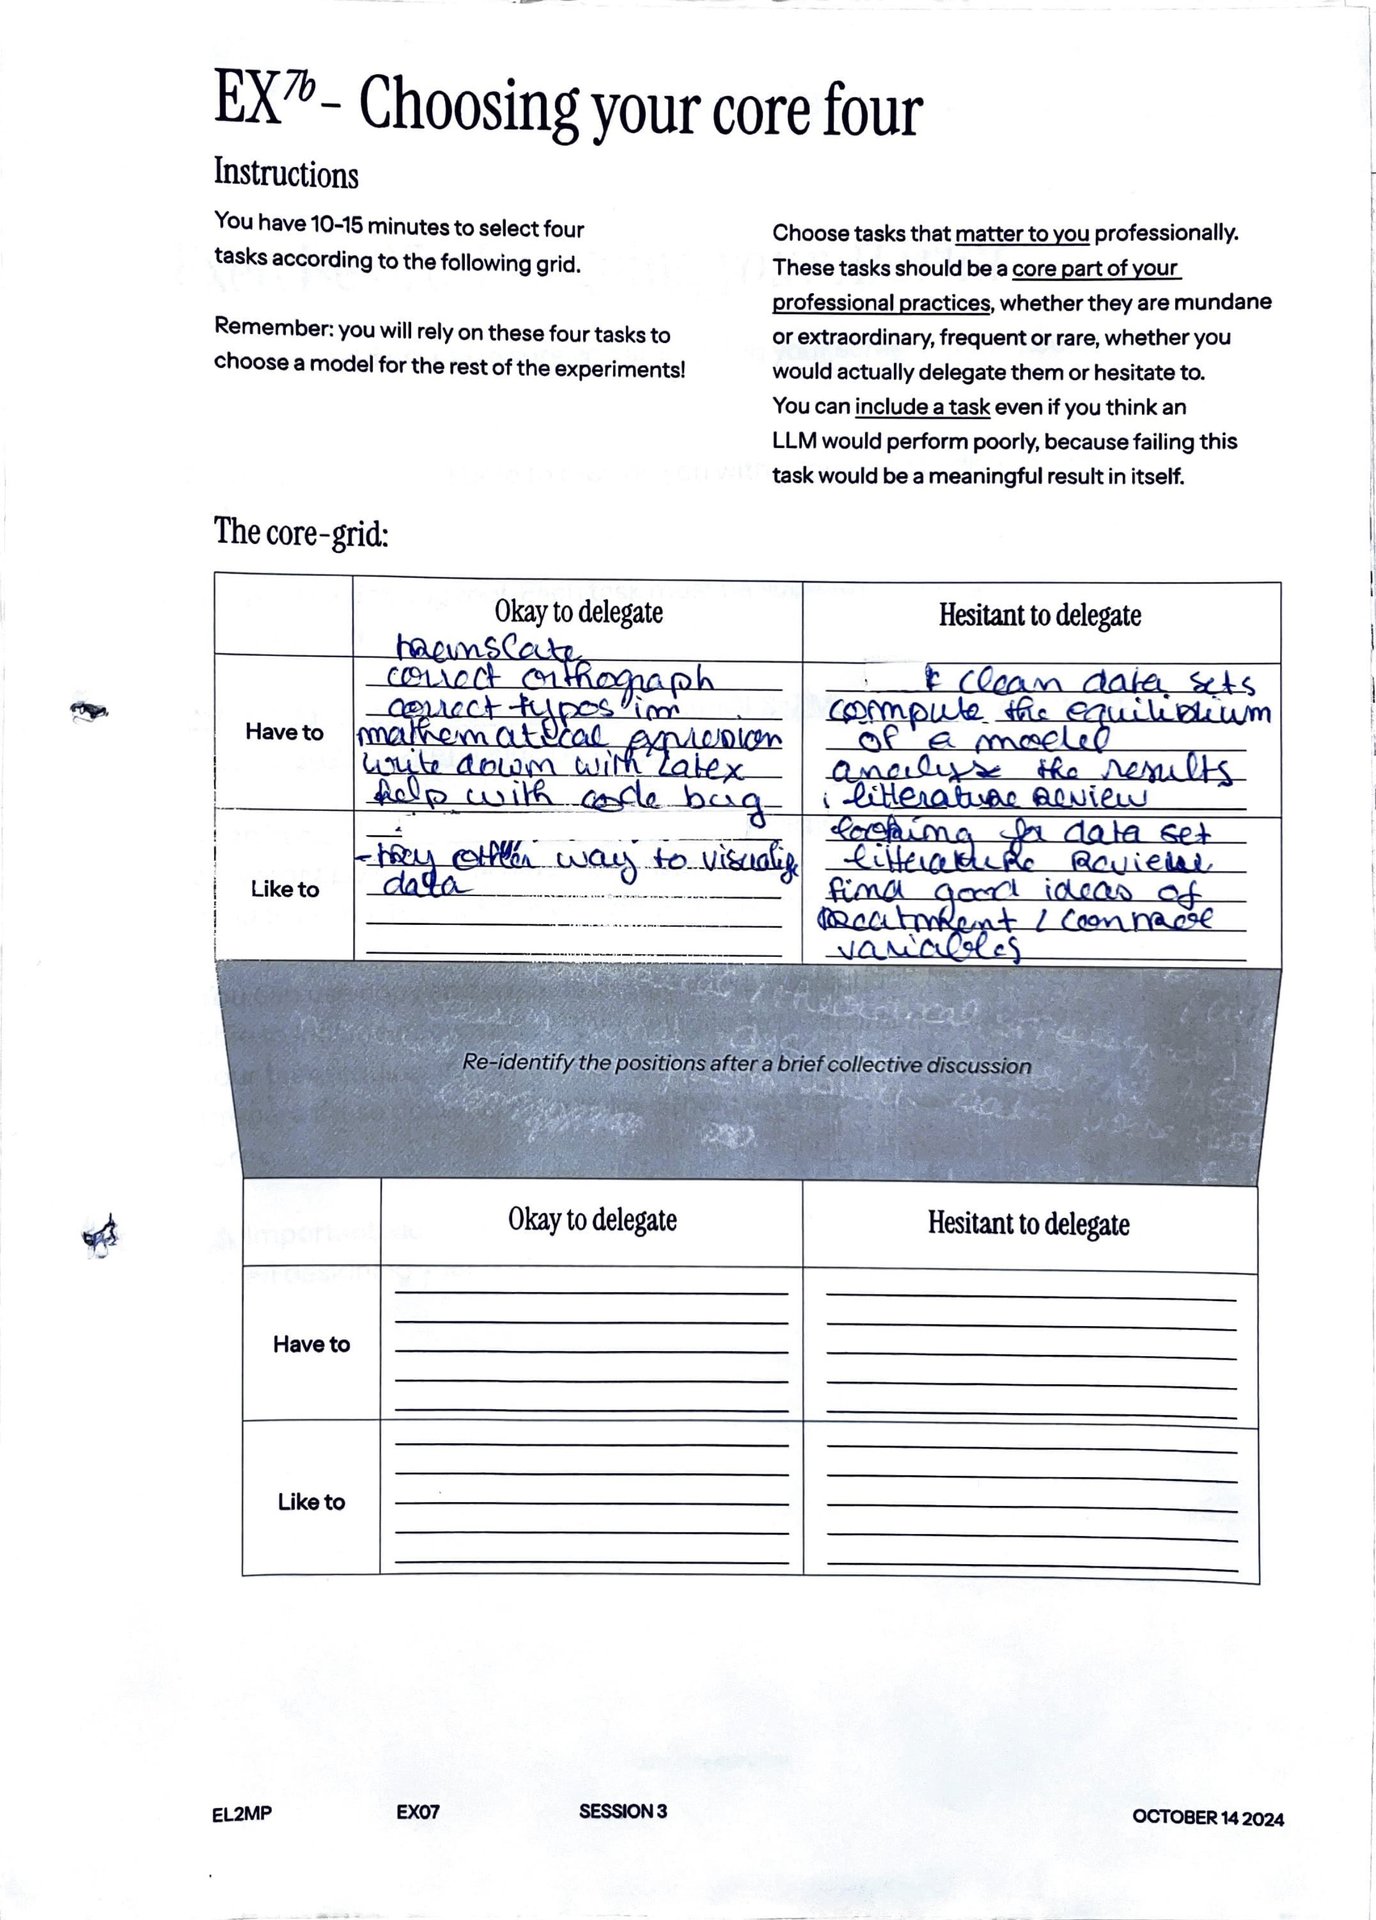 EX7b - Choosing your core four
Instructions
You have 10-15 minutes to select four
tasks according to the following grid.
Remember: you will rely on these four tasks to
choose a model for the rest of the experiments!
Choose tasks that matter to you professionally.
These tasks should be a core part of your
professional practices, whether they are mundane
or extraordinary, frequent or rare, whether you
would actually delegate them or hesitate to.
You can include a task even if you think an
LLM would perform poorly, because failing this
task would be a meaningful result in itself.
The core-grid:
Okay to delegate
Hesitant to delegate
Have to
translate
correct orthograph
correct typos in
mathematical expression
write down with Latex
help with code bug
clean data sets
compute the equilibrium
of a model
analyse the results
litterature review
Like to
- try other way to visualize
data
looking for data set
litterature review
find good ideas of
treatment / control
variables
Re-identify the positions after a brief collective discussion
Okay to delegate
Hesitant to delegate
Have to
Like to
EL2MP
EX07
SESSION 3
OCTOBER 14 2024